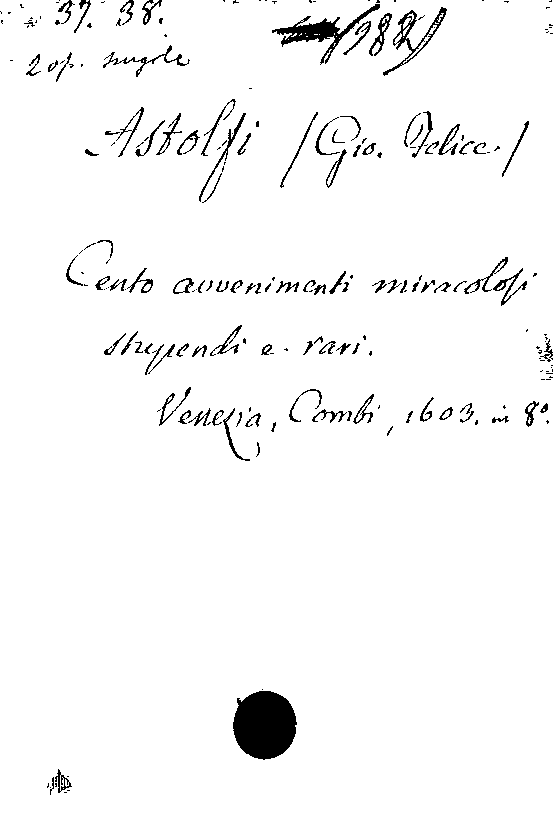 37. 38.
(982)
2 op. singole
Astolfi (Gio. Felice.)
Cento avvenimenti miracolosi
stupendi e rari.
Venezia, Combi, 1603. in 8º.